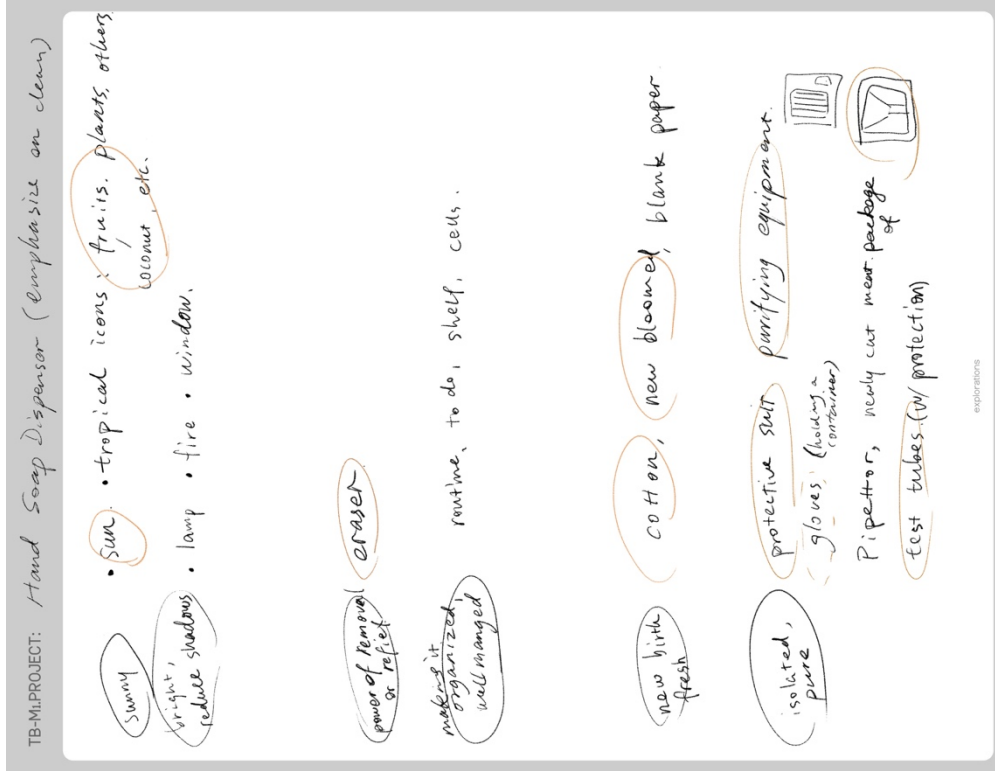 TB-M1.PROJECT: Hand Soap Dispensor (emphasize on clean)
sunny
• sun. • tropical icons: fruits. plants, others
coconut, etc.
bright,
reduce shadows
• lamp • fire • window.
power of removal
or relief
eraser
making it
organized,
well manged
routine, to do, shelf, cells.
new birth
fresh
cotton, new bloomed, blank paper.
isolated,
pure
protective suit purifying equipment.
gloves. (holding a
container)
Pipettor, newly cut meat. package
of
test tubes. (w/ protection)
explorations